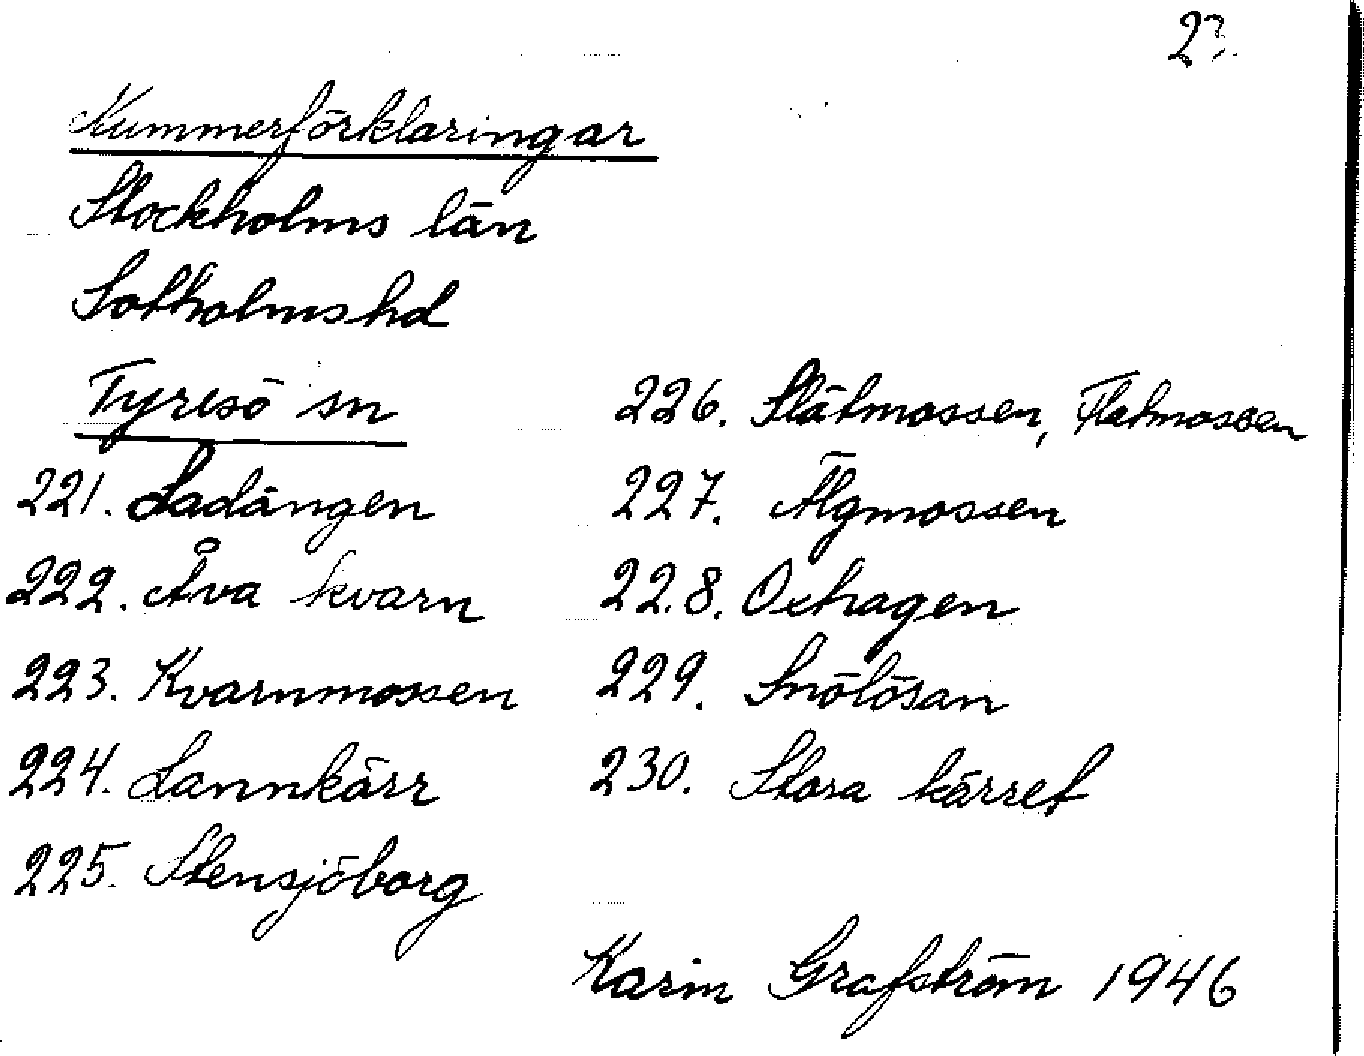 23.
Nummerförklaringar
Stockholms län
Sotholms hd
Tyresö sn
221. Ladängen
222. Åva kvarn
223. Kvarnmossen
224. Lannkärr
225. Stensjöborg
226. Slätmossen, Flatmossen
227. Älgmossen
228. Oxhagen
229. Snölösan
230. Stora kärret
Karin Grafström 1946